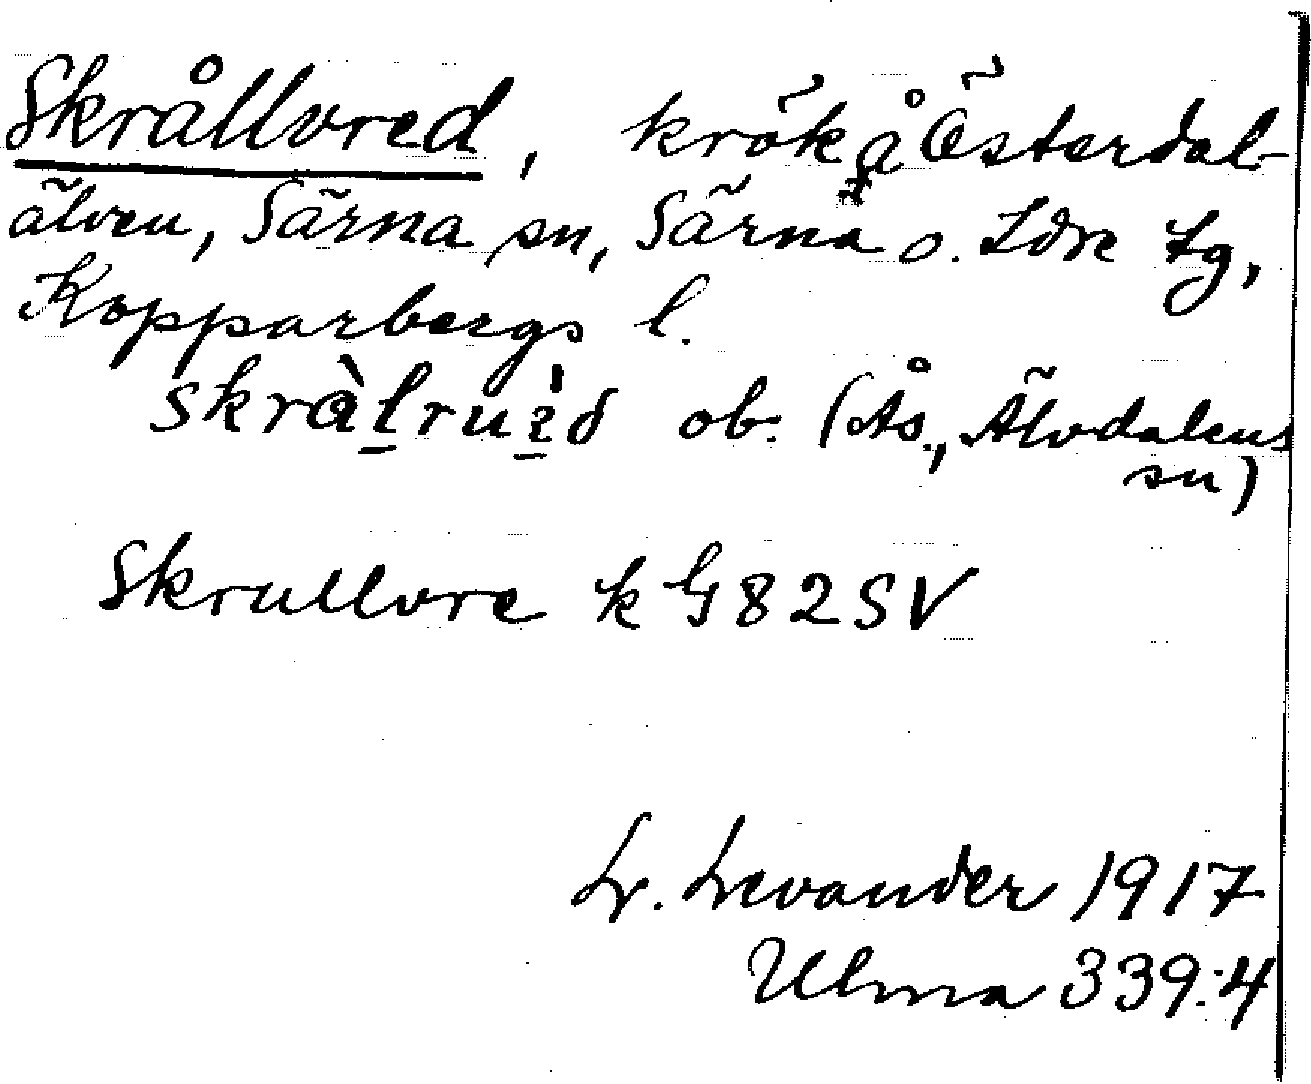 Skrållvred, krök å Österdal-
älven, Särna sn, Särna o. Idre tg,
Kopparbergs l.
skràlruìd ob. (Ås., Älvdalens
sn)
Skrullvre k G82SV
L. Levander 1917
Ulma 339:4